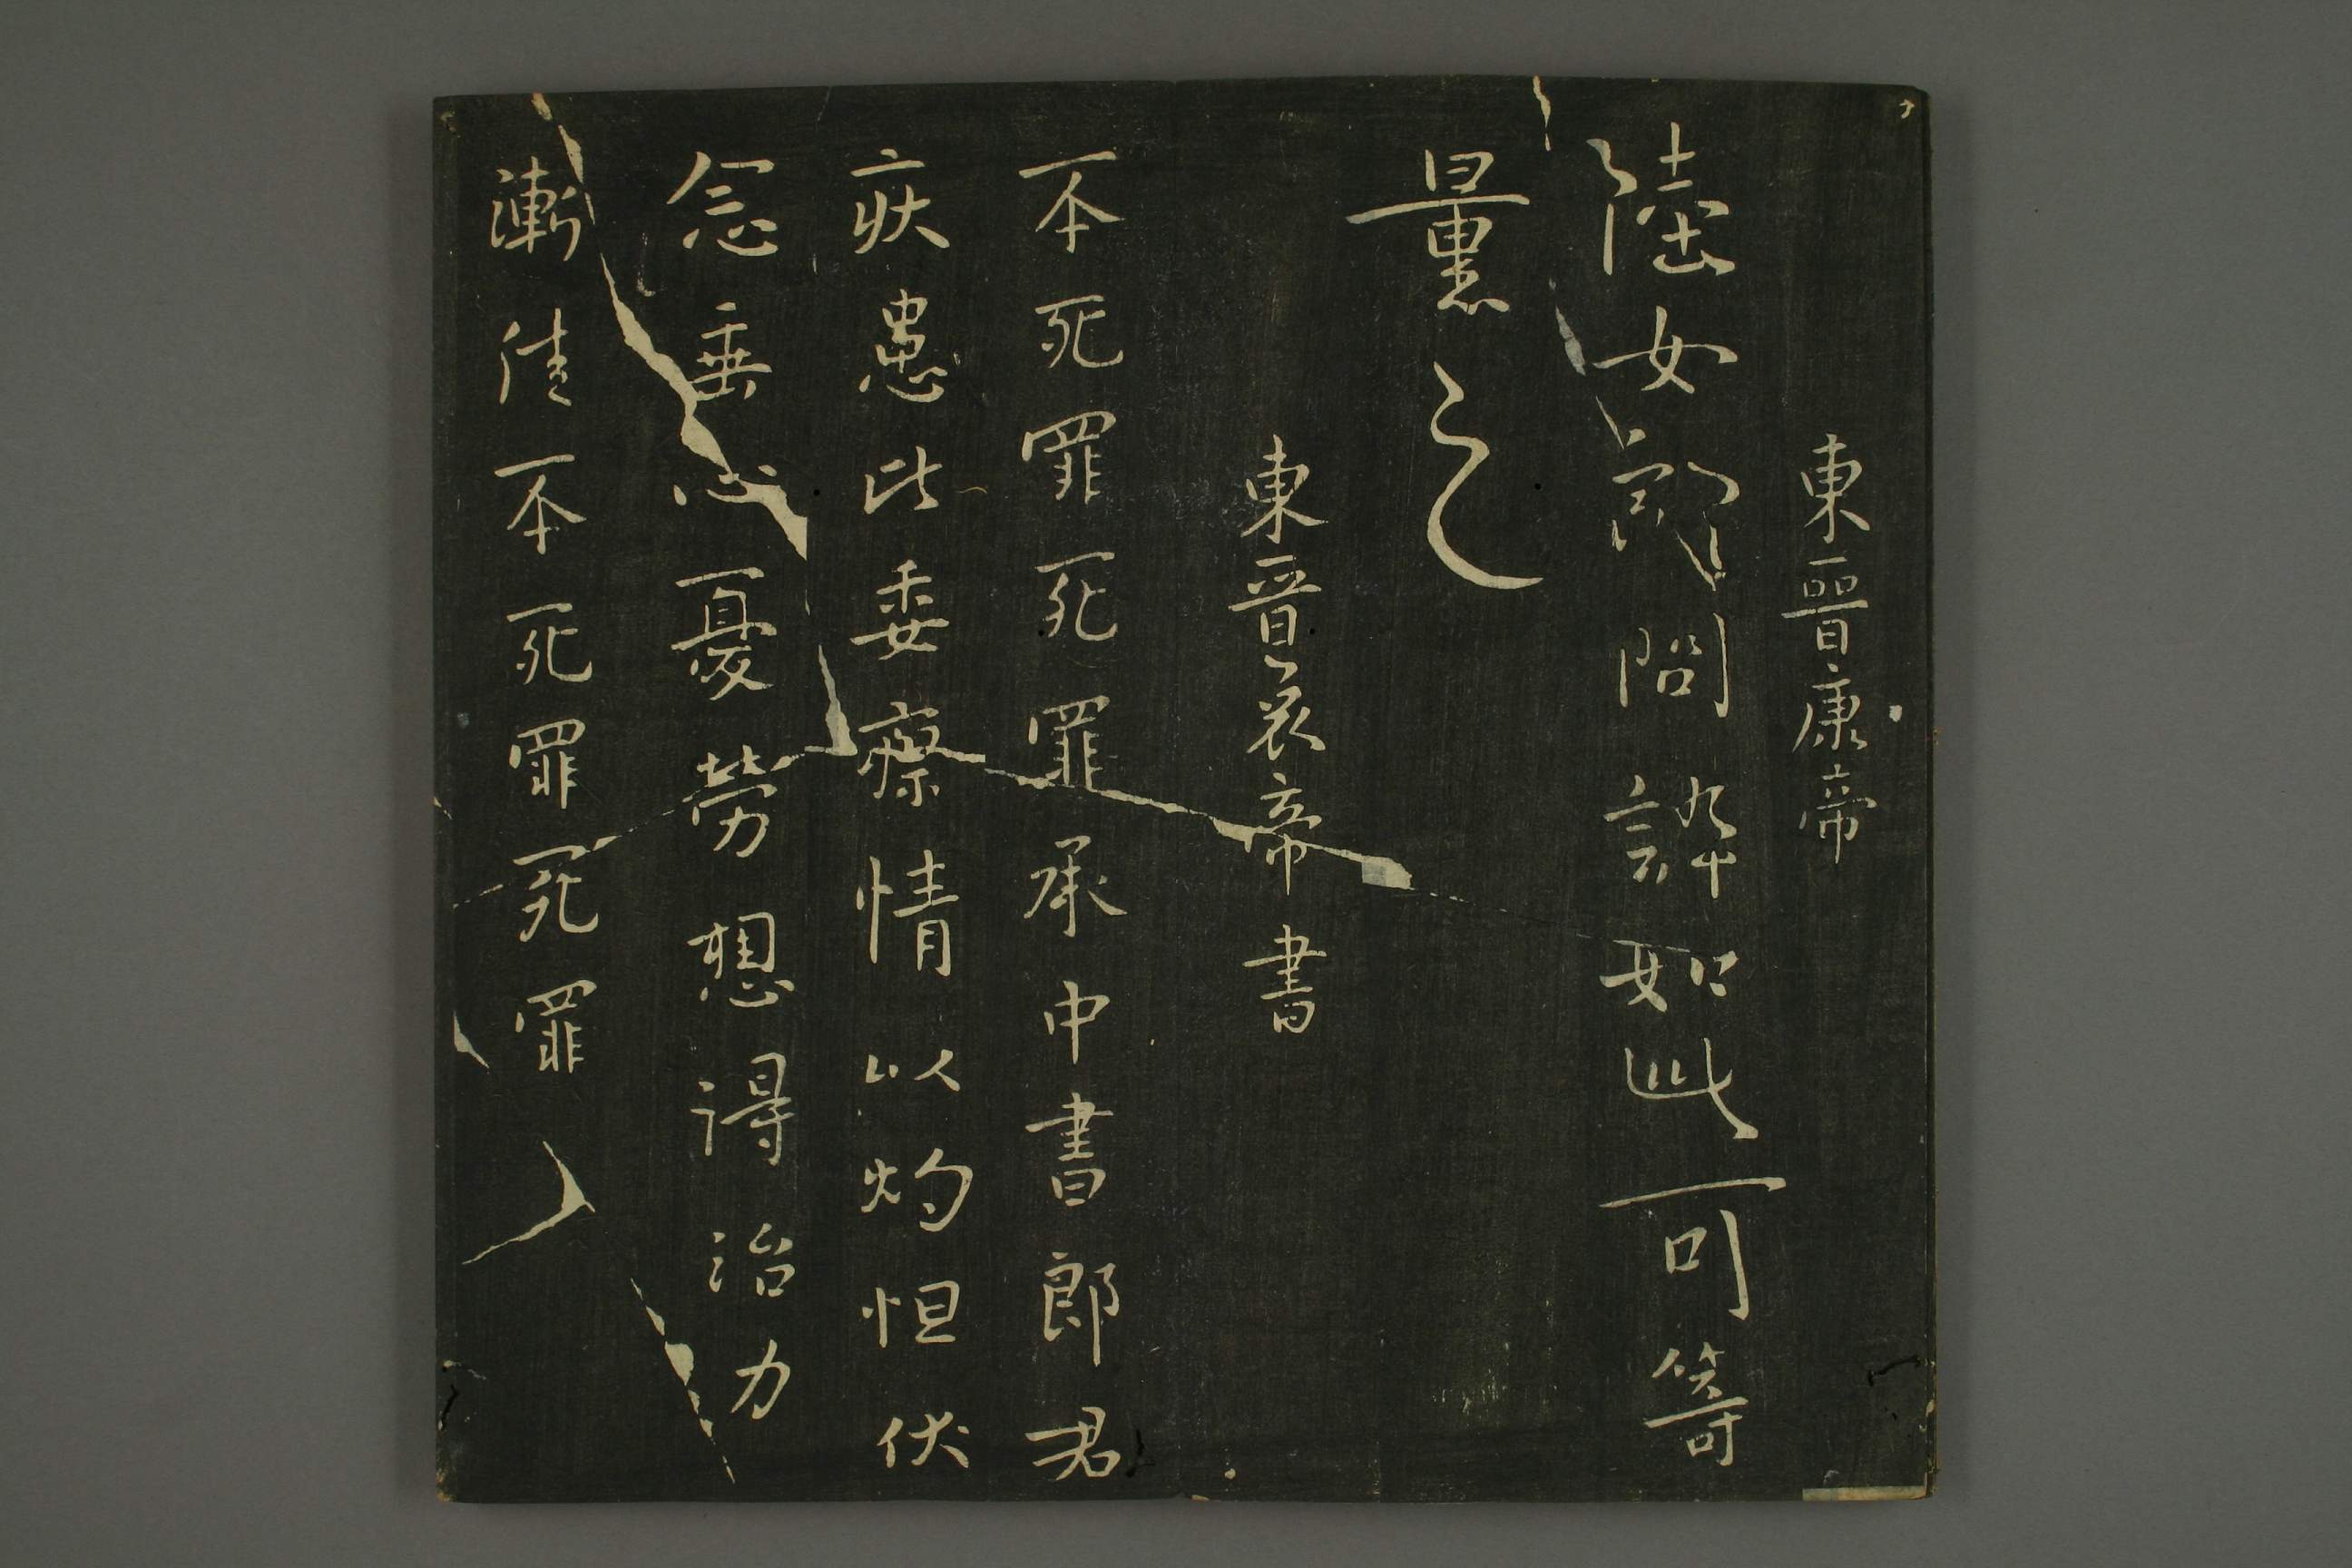 東晉康帝
陸女郎問訊如此可等
量之
東晉哀帝書
不死罪死罪承中書郎君
疾患此委察情以灼怛伏
念垂心憂勞想得治力
漸佳不死罪死罪